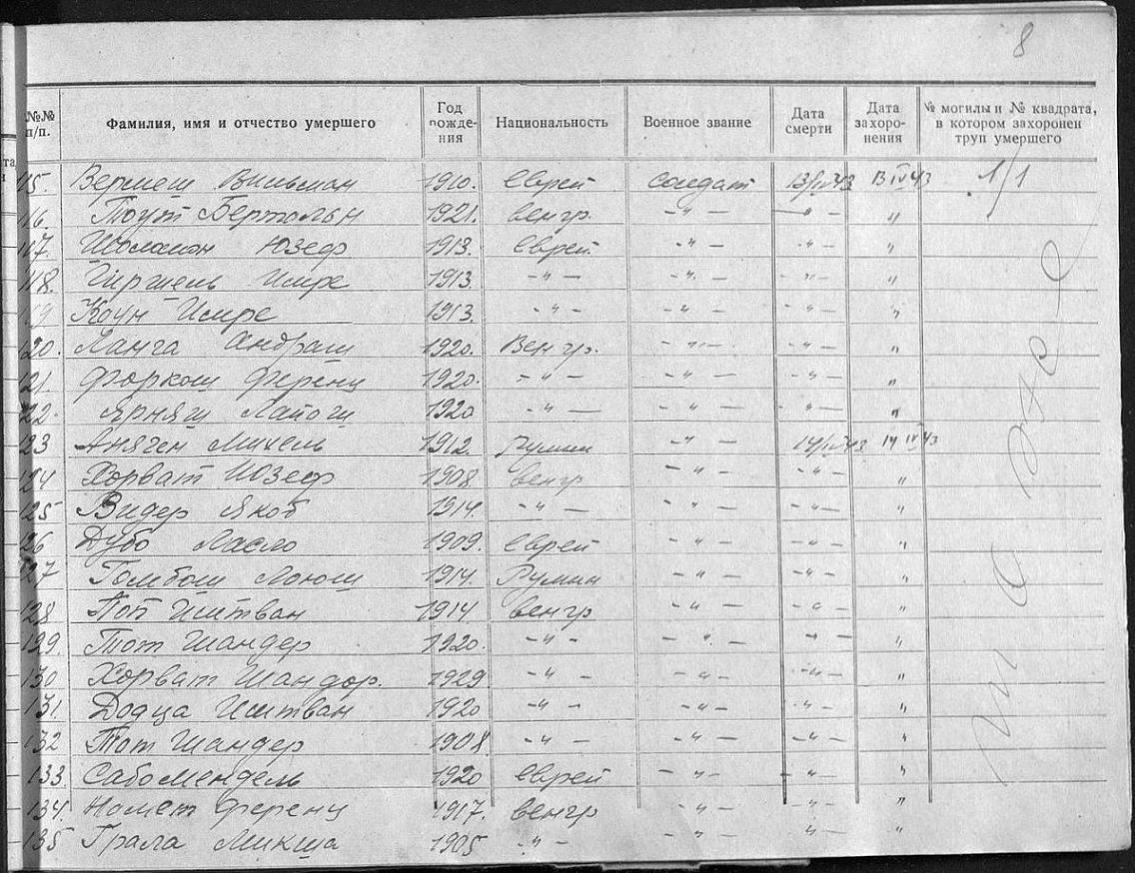 8
№№ п/п. Фамилия, имя и отчество умершего Год рождения Национальность Военное звание Дата смерти Дата захоронения № могилы и № квадрата, в котором захоронен труп умершего
15. Вермеш Вильман 1910. Еврей солдат 13/IV 43 13 IV 43 1/1
16. Тоут Бертольн 1921. венгр. -"- -"- "
117. Шоламон Юзеф 1913. Еврей. -"- -"- "
118. Гиршель Имре 1913. -"- -"- -"- "
119 Коун Имре 1913. -"- -"- -"- "
120. Ланга Андраш 1920. Венгр. -"- -"- "
121. Форкош Ференц 1920. -"- -"- -"- "
122. Ярняш Лайош 1920 -"- -"- -"- "
123 Михель 1912. Румын -"- 14/IV 43 14 IV 43
124 Хорват Юзеф 1908 венгр -"- -"- "
125 Видер Якоб 1914. -"- -"- -"- "
126 Дубо Ласло 1909. Еврей -"- -"- "
127 Гомбош Лоюш 1914. Румын -"- -"- "
128 Поп Иштван 1914. венгр -"- -"- "
129. Тот Шандер 1920. -"- -"- -"- "
130 Хорват Шандор. 1929 -"- -"- -"- "
131. Додца Иштван 1920 -"- -"- -"- "
132 Тот Шандер 1908 -"- -"- -"- "
133. Сабо Мендель 1920 Еврей -"- -"- "
134. Номет Ференц 1917. венгр -"- -"- "
135 Грала Микша 1905 -"- -"- -"- "
то же